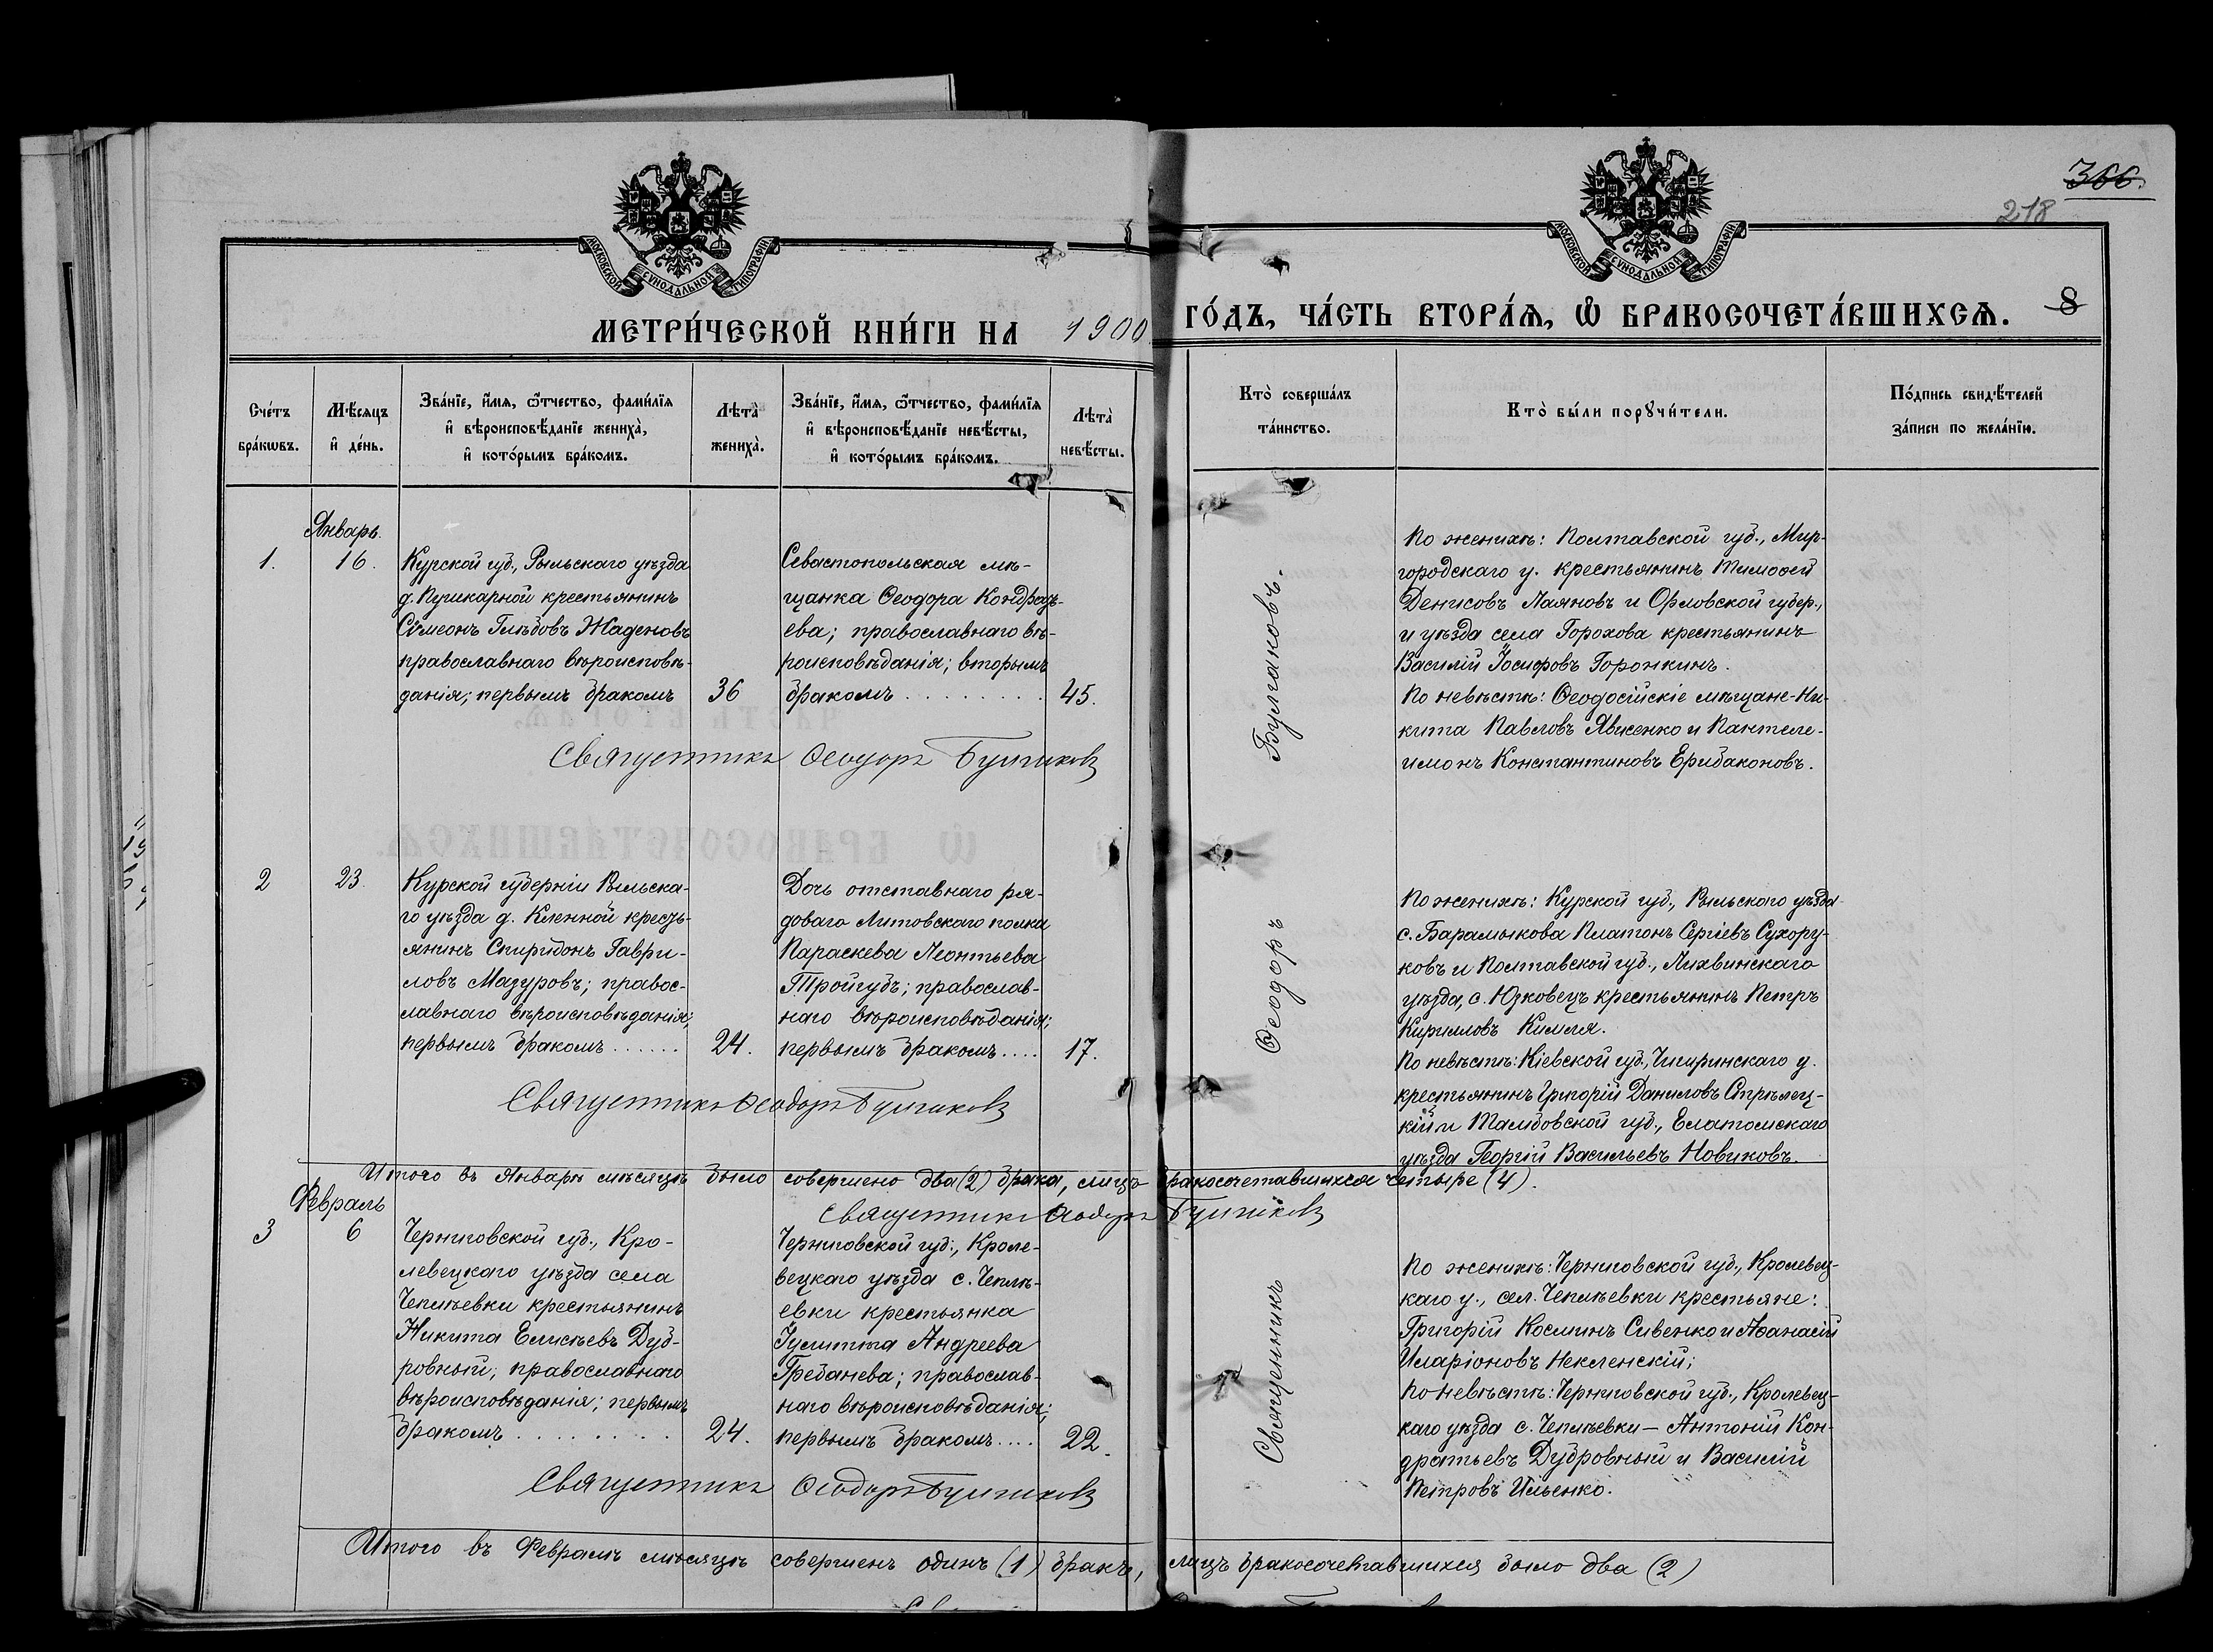 366.
218
МОСКОВСКОЙ СѴНОДАЛЬНОЙ ТИПОГРАФІИ
МОСКОВСКОЙ СѴНОДАЛЬНОЙ ТИПОГРАФІИ
МЕТРИ́ЧЕСКОЙ КНИ́ГИ НА 1900 ГО́ДЪ, ЧА́СТЬ ВТОРА́Ѧ, Ѿ БРАКОСОЧЕТА́ВШИХСѦ. 8
Сче́тъ
бра́кѡвъ.
Мѣ́сѧцъ
и҆ де́нь.
Зва́нїе, и҆́мѧ, ѻ҆́тчество, фами́лїѧ
и҆ вѣроисповѣ́данїе жениха̀,
и҆ кото́рымъ бра́комъ.
Лѣта̀
жениха̀.
Зва́нїе, и҆́мѧ, ѻ҆́тчество, фами́лїѧ
и҆ вѣроисповѣ́данїе невѣ́сты,
и҆ кото́рымъ бра́комъ.
Лѣта̀
невѣ́сты.
Кто̀ соверша́лъ
та́инство.
Кто̀ бы́ли порꙋчи́тели.
По́дпись свидѣ́телей
за́писи по жела́нїю.
Январь.
1.
16.
Курской губ., Рыльскаго уѣзда
д. Пушкарной крестьянинъ
Сѵмеонъ Глѣбовъ Жаденовъ
православнаго вѣроисповѣ-
данія; первымъ бракомъ
36
Севастопольская мѣ-
щанка Ѳеодора Кондрать-
ева; православнаго вѣ-
роисповѣданія; вторымъ
бракомъ . . . . . . . .
45.
По женихѣ: Полтавской губ., Мир-
городскаго у. крестьянинъ Тимоѳей
Денисовъ Лаяновъ и Орловской губер.,
и уѣзда села Горохова крестьянинъ
Василій Іосифовъ Горонкинъ.
По невѣстѣ: Ѳеодосійскіе мѣщане- Ни-
кита Павловъ Явженко и Пантеле-
имонъ Константиновъ Ерибаконовъ.
Священникъ Ѳеодоръ Булгаковъ
2
23.
Курской губерніи Рыльска-
го уѣзда д. Кленной кресть-
янинъ Спиридонъ Гаври-
ловъ Мазуровъ; правос-
лавнаго вѣроисповѣданія;
первымъ бракомъ . . . . . .
24.
Дочь отставнаго ря-
доваго Литовскаго полка
Параскева Леонтьева
Тройгубъ; православ-
наго вѣроисповѣданія;
первымъ бракомъ. . . .
17.
По женихѣ: Курской губ., Рыльскаго уѣзда
с. Барамыкова Платонъ Сергіевъ Сухору-
ковъ и Полтавской губ., Лихвинскаго
уѣзда, с. Юзковецъ крестьянинъ Петръ
Кирилловъ Кимля.
По невѣстѣ: Кіевской губ., Чигиринскаго у.
крестьянинъ Григорій Даниловъ Стрѣлец-
кій и Тамбовской губ., Елатомскаго
уѣзда Георгій Васильевъ Новиковъ.
Священникъ Ѳеодоръ Булгаковъ
Итого въ Январѣ мѣсяцѣ было совершено два (2) брака, лицъ бракосочетавшихся четыре (4).
Священникъ Ѳеодоръ Булгаковъ
Февраль
3
6
Черниговской губ., Кро-
левецкаго уѣзда села
Чеплѣевки крестьянинъ
Никита Елисѣевъ Дуб-
ровный; православнаго
вѣроисповѣданія; первымъ
бракомъ . . . . . . . . .
24.
Черниговской губ., Кроле-
вецкаго уѣзда с. Чеплѣ-
евки крестьянка
Іулитта Андреева
Гребанева; православ-
наго вѣроисповѣданія;
первымъ бракомъ. . . .
22.
Священникъ Ѳеодоръ Булгаковъ.
По женихѣ: Черниговской губ., Кролевец-
каго у., сел. Чеплѣевки крестьяне:
Григорій Косминъ Сивенко и Аѳанасій
Иларіоновъ Некленскій;
По невѣстѣ: Черниговской губ., Кролевец-
каго уѣзда с. Чеплѣевки — Антоній Кон-
дратьевъ Дубровный и Василій
Петровъ Ильенко.
Священникъ Ѳеодоръ Булгаковъ
Итого въ Февралѣ мѣсяцѣ совершенъ одинъ (1) бракъ, лицъ бракосочетавшихся было два (2)